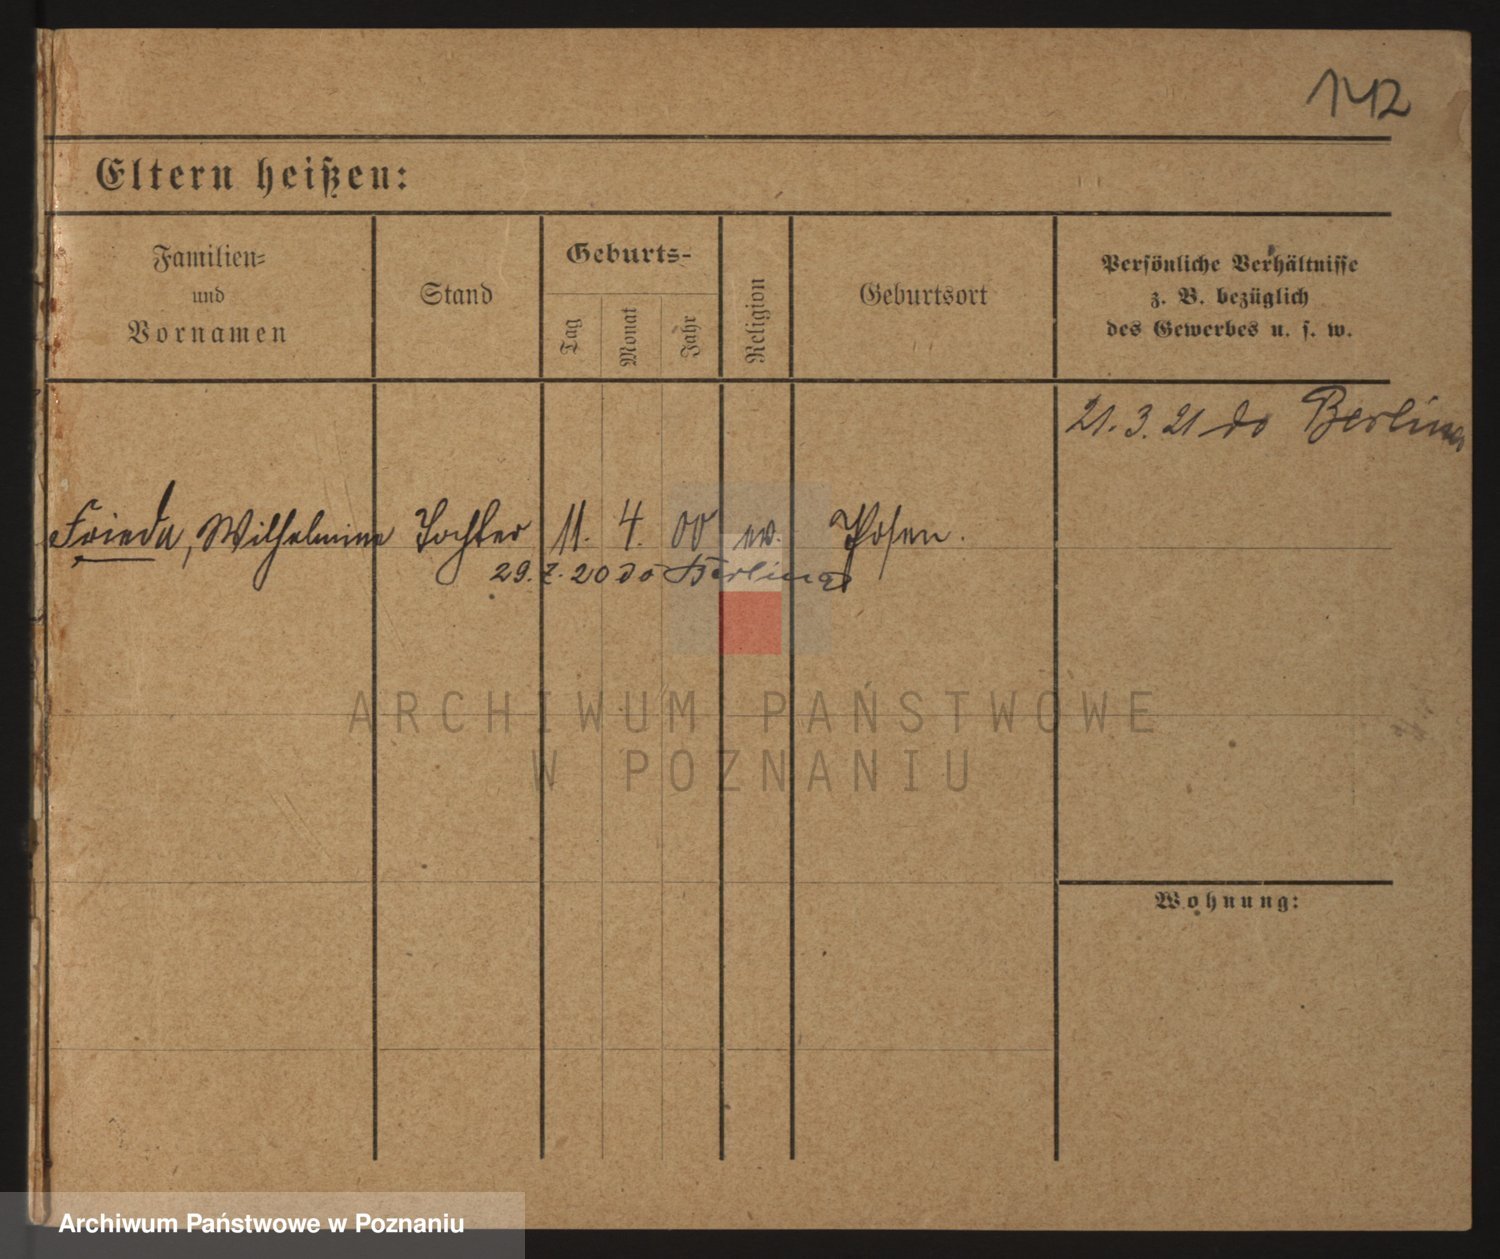 142
Eltern heißen:
Familien=
und
Vornamen
Stand
Geburts-
Tag
Monat
Jahr
Religion
Geburtsort
Persönliche Verhältnisse
z. B. bezüglich
des Gewerbes u. s. w.
21. 3. 21 do Berlina
Frieda, Wilhelmine Tochter 11. 4. 00 ev. Posen.
29. 7. 20 do Berlina
ARCHIWUM PAŃSTWOWE
W POZNANIU
Wohnung:
Archiwum Państwowe w Poznaniu